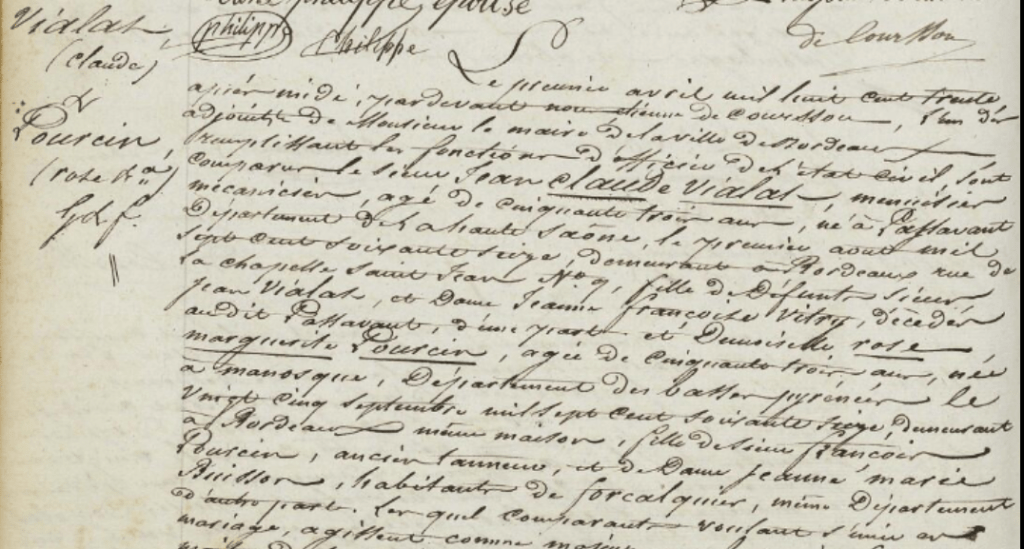 philippe, épouse
philippe Philippe de Coursson
Vialat,
(Claude)
&
Pourcin,
(rose &a)
G d. f.
Le premier avril mil huit cent trente,
après midi, pardevant nous étienne de Coursson, l'un des
adjoints de Monsieur le maire de la ville de Bordeaux
remplissant les fonctions d'officier de l'état civil, sont
comparus le sieur Jean Claude Vialat, menuisier
mécanicien, agé de cinquante trois ans, né à Passavant
Département de la haute Saône, le premier aout mil
sept cent soixante seize, demeurant à Bordeaux rue de
la chapelle Saint Jean No. 9, fils de Défunts sieur
jean Vialat, et Dame Jeanne françoise Vitry, décédés
audit Passavant, d'une part et Demoiselle rose
marguerite Pourcin, agée de cinquante trois ans, née
à manosque, Département des basses pyrénées le
Vingt cinq septembre mil sept cent soixante seize, demeurant
à Bordeaux même maison, fille de sieur françois
Pourcin, ancien tanneur, et de Dame jeanne marie
Buisson, habitants de forcalquier, même Département
d'autre part. Les quels comparants voulant s'unir en
mariage, agissent comme majeurs